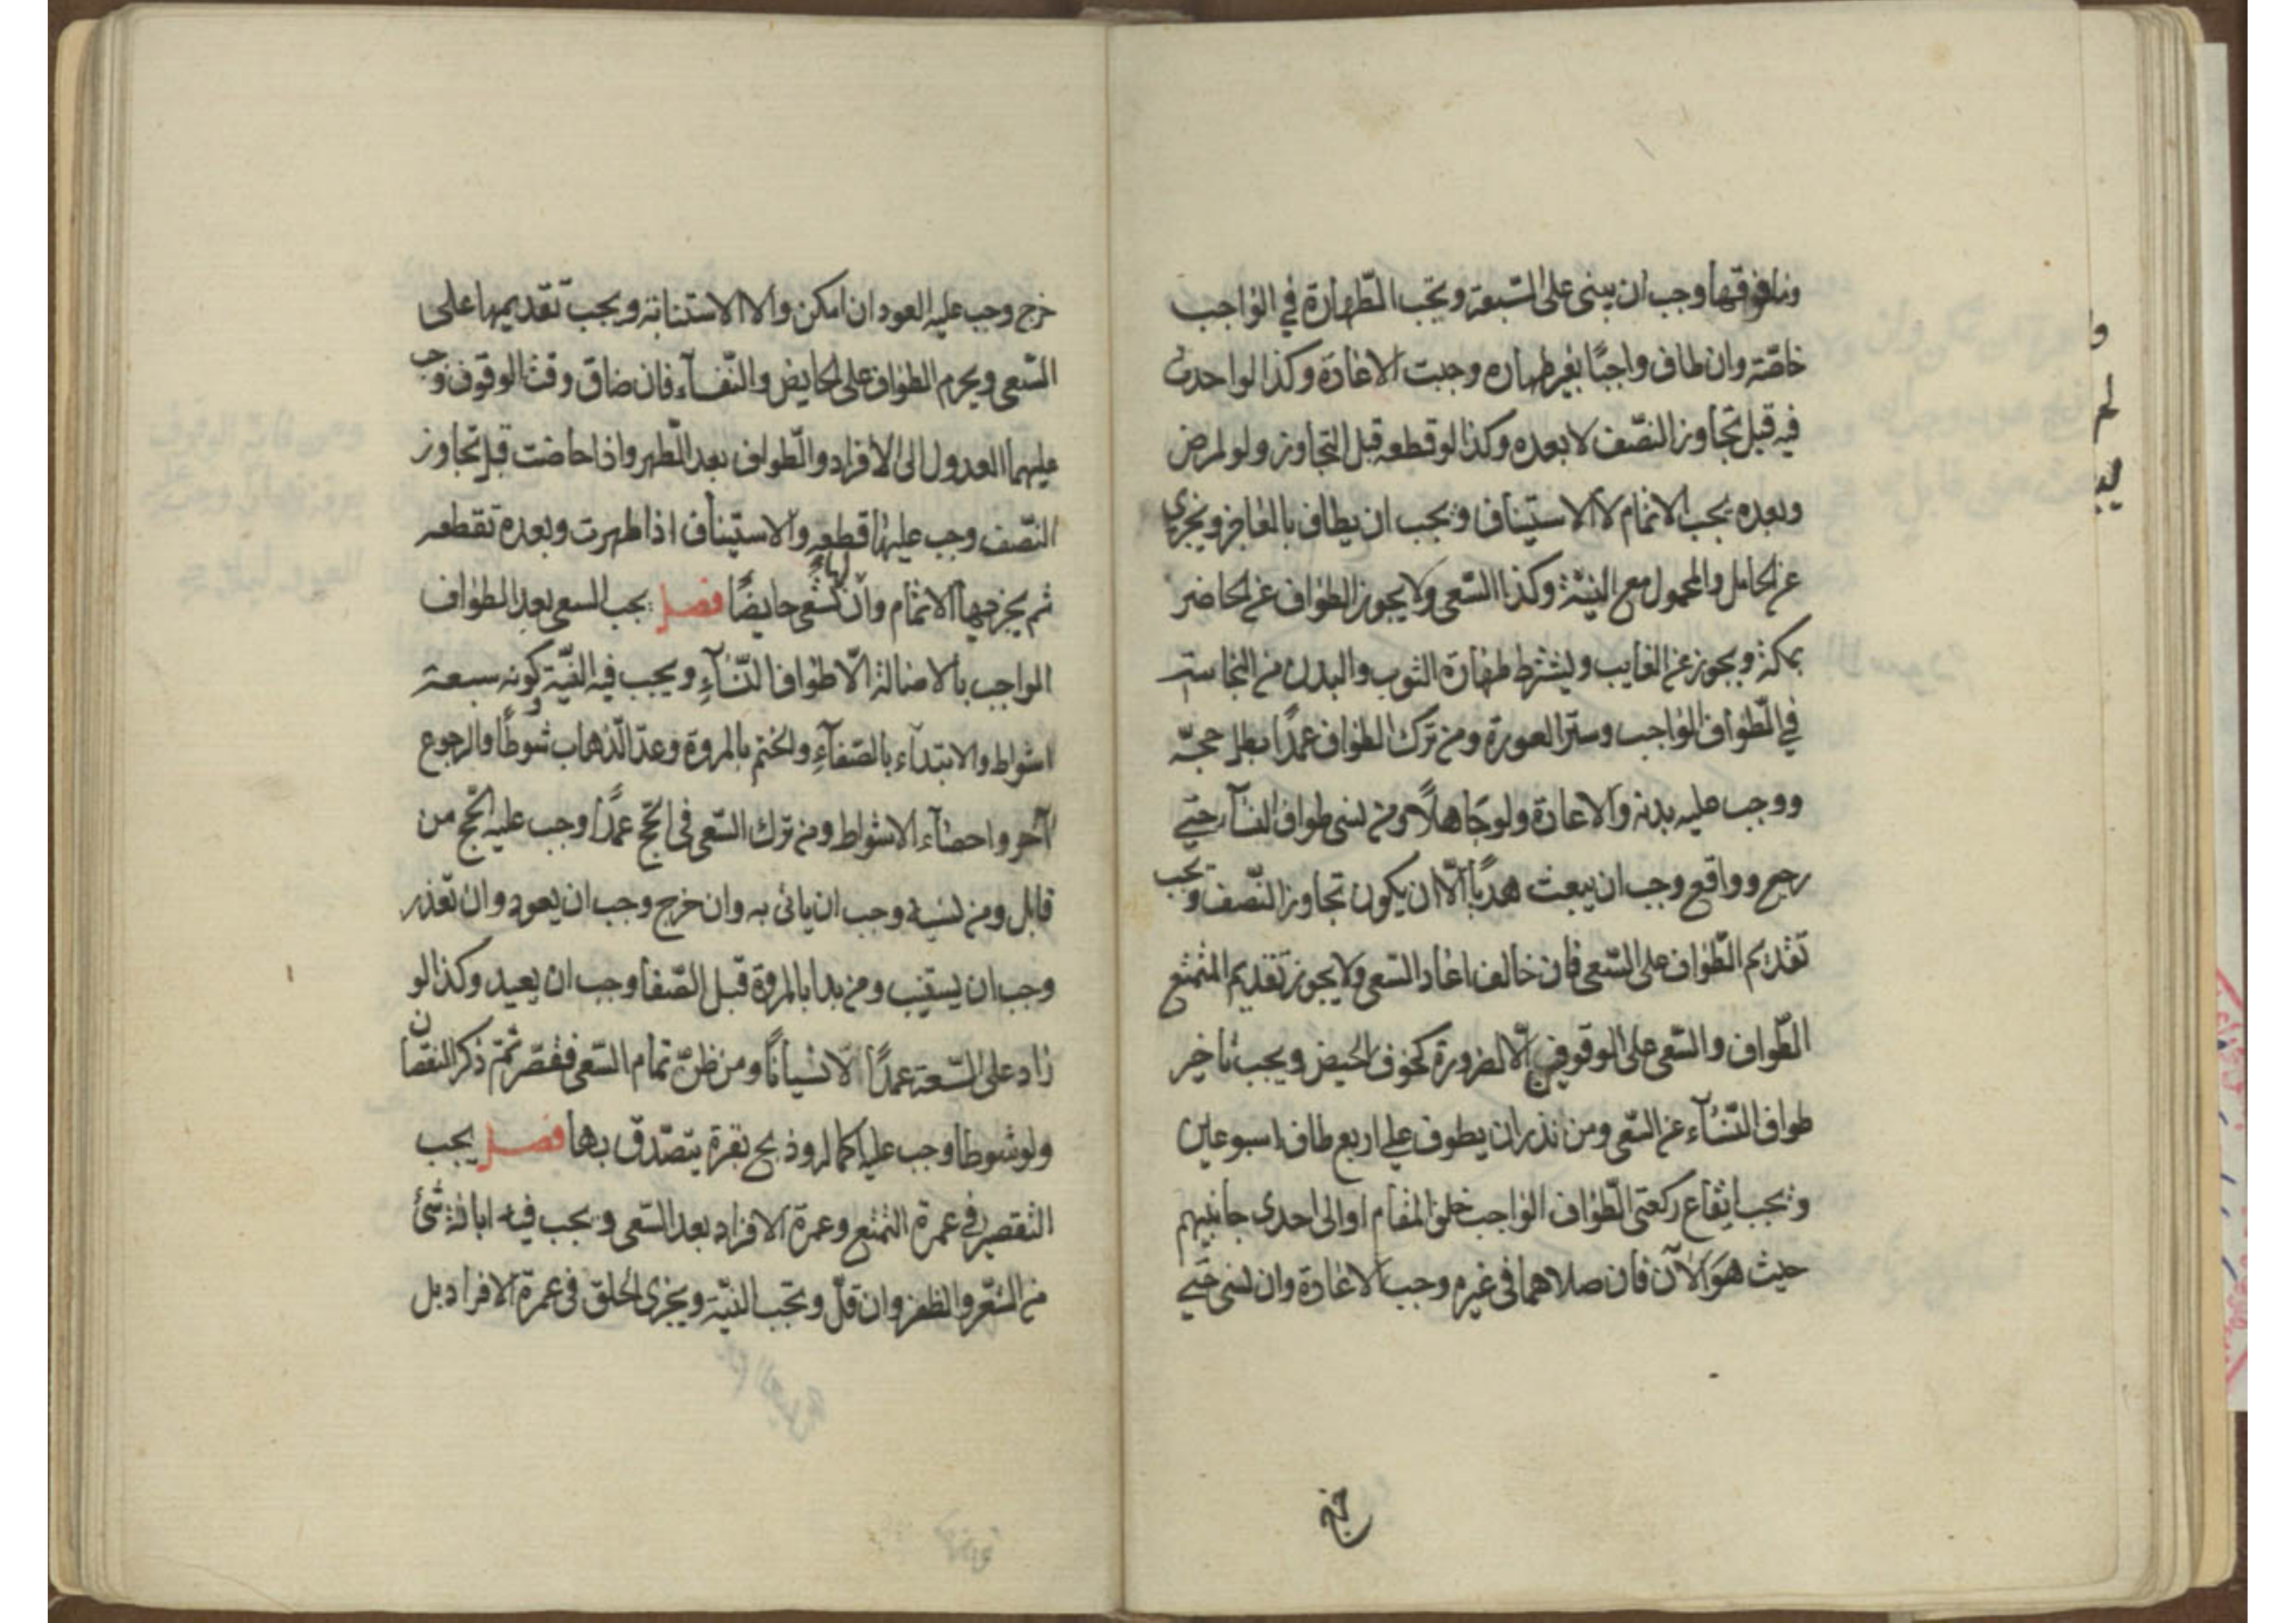 وما فوقها وجب ان يبنى على السّبعة ويجب الطّهارة في الواجب
خاصّة وان طاف واجبًا بغير طهارة وجبت الاعادة وكذا لو احدث
فيه قبل تجاوز النصّف لا بعده وكذا لو قطعه قبل التجاوز ولو لمرض
وبعده يجب الاتمام لا الاستيناف ويجب ان يطاف بالعاجز ويجزي
عن الحامل والمحمول مع النيّة وكذا السّعى ولا يجوز الطواف عن الحاضر
بمكة ويجوز عن الغايب ويشترط طهارة الثوب والبدن من النجاسة
في الطّواف الواجب وستر العورة ومن ترك الطواف عمدًا بطل حجّه
ووجب عليه بدنة والاعادة ولو جاهلًا ومن نسى طواف النسآء حتى
رجع وواقع وجب ان يبعث هديًا الّا ان يكون تجاوز النّصف ويجب
تقديم الطّواف على السّعى فان خالف اعاد السّعى ولا يجوز تقديم المتمتع
الطّواف والسّعى على الوقوفين الّا لضرورة كخوف الحيض ويجب تاخير
طواف النّسآء عن السّعى ومن نذر ان يطوف على اربع طاف اسبوعين
ويجب ايقاع ركعتى الطّواف الواجب خلف المقام او الى احدى جانبيه
حيث هو الآن فان صلاهما في غيره وجب الاعادة وان نسى حتى
خرج
خرج وجب عليه العود ان امكن والا الاستنابة ويجب تقديمها على
السّعى ويحرم الطواف على الحايض والنّفسآء فان ضاق وقت الوقوف وجب
عليهما العدول الى الافراد والطّواف بعد الطّهر واذا حاضت قبل تجاوز
النّصف وجب عليها قطعه والاستيناف اذا طهرت وبعده تقطعه
ثم يجزيها الاتمام ولها ان تسعى حايضًا فصل يجب السعى بعد الطواف
الواجب بالاصالة الّا طواف النّسآء ويجب فيه النيّة وكونه سبعة
اشواط والابتدآء بالصّفآء والختم بالمروة وعدّ الذّهاب شوطًا والرجوع
آخر واحصآء الاشواط ومن ترك السّعى في الحّج عمدًا وجب عليه الحّج من
قابل ومن نسيه وجب ان ياتى به وان خرج وجب ان يعود وان تعّذر
وجب ان يستنيب ومن بدا بالمروة قبل الصّفا وجب ان يعيد وكذا لو
زاد على السّبعة عمدًا لا نسيانًا ومن ظنّ تمام السّعى فقصّر ثمّ ذكر النقصان
ولو شوطا وجب عليه اكماله وذبح بقرة يتصّدق بها فصل يجب
التقصير في عمرة التمتع وعمرة الافراد بعد السّعى ويجب فيه ابانة شئ
من الشّعر والظفر وان قلّ ويجب النيّة ويجزى الحلق في عمرة الافراد بل